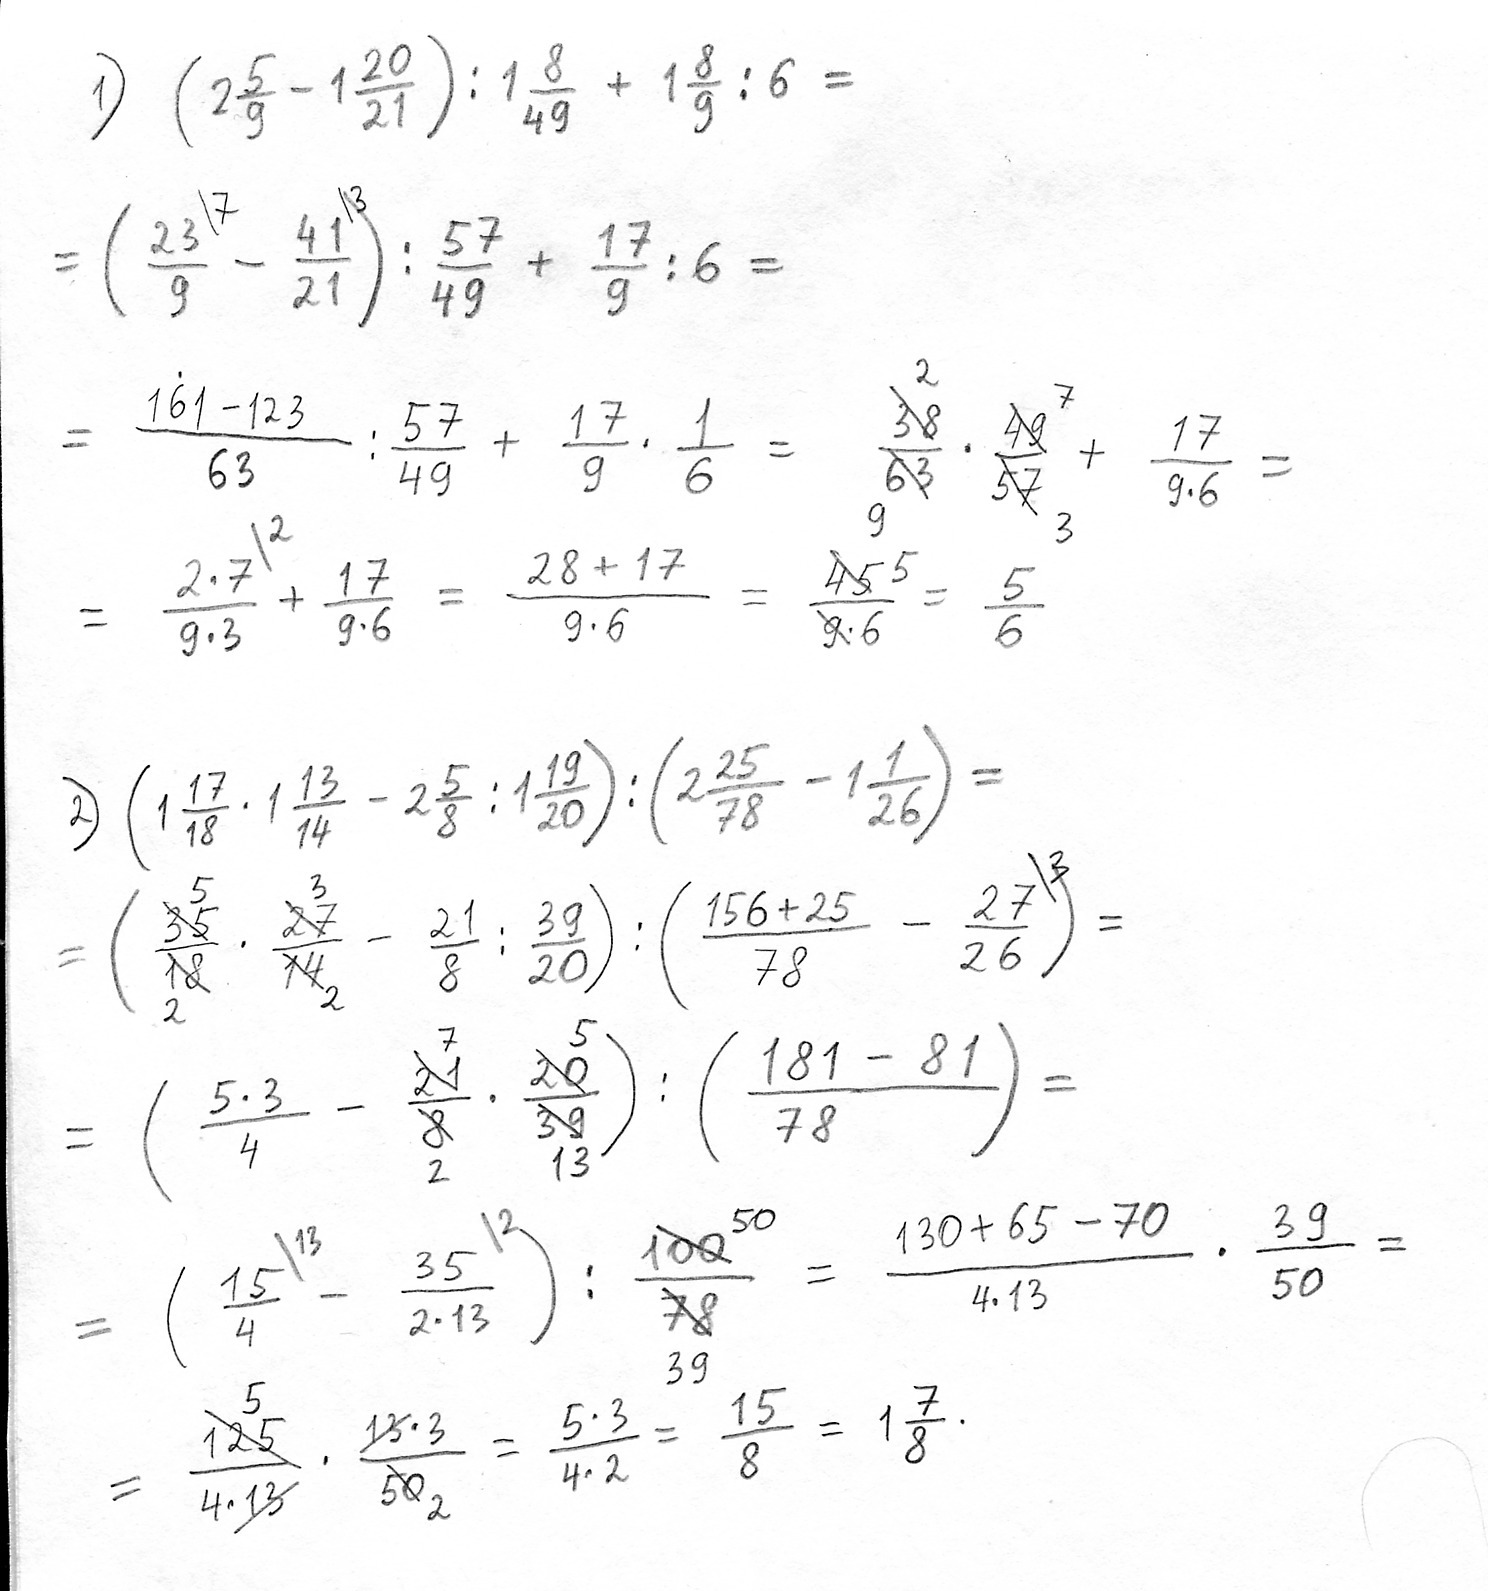 1) (2 5/9 − 1 20/21) : 1 8/49 + 1 8/9 : 6 =
= (23/9 \7 − 41/21 \3) : 57/49 + 17/9 : 6 =
= (161 − 123)/63 : 57/49 + 17/9 · 1/6 = 38/63 2 9 · 49/57 7 3 + 17/(9·6) =
= (2·7)/(9·3) \2 + 17/(9·6) = (28 + 17)/(9·6) = 45/(9·6) 5 = 5/6
2) (1 17/18 · 1 13/14 − 2 5/8 : 1 19/20) : (2 25/78 − 1 1/26) =
= (35/18 5 2 · 27/14 3 2 − 21/8 : 39/20) : ((156+25)/78 − 27/26 \3) =
= ((5·3)/4 − 21/8 7 2 · 20/39 5 13) : ((181 − 81)/78) =
= (15/4 \13 − 35/(2·13) \2) : 100/78 50 39 = (130 + 65 − 70)/(4·13) · 39/50 =
= 125/(4·13) 5 · (13·3)/50 2 = (5·3)/(4·2) = 15/8 = 1 7/8 .